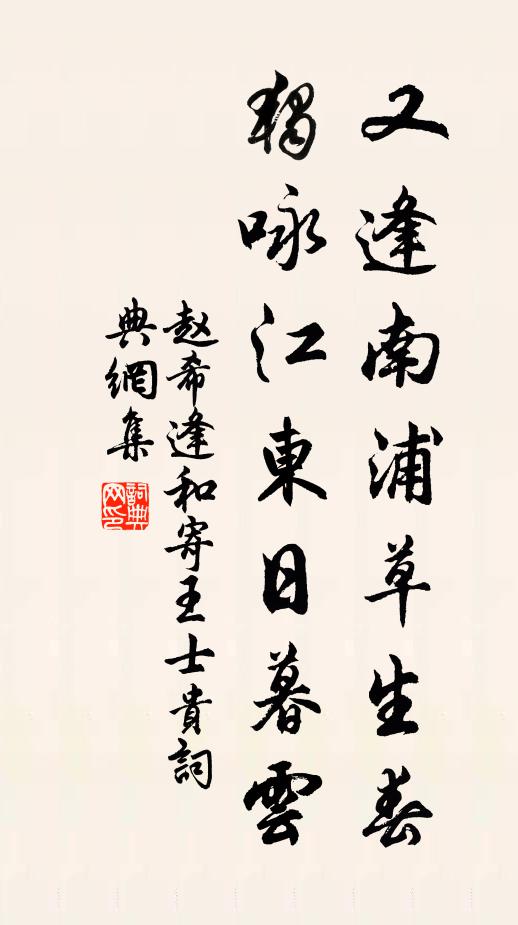 又逢南浦草生春
獨咏江東日暮雲
赵希逢和寄王士貴詞
典網集
詞典网印